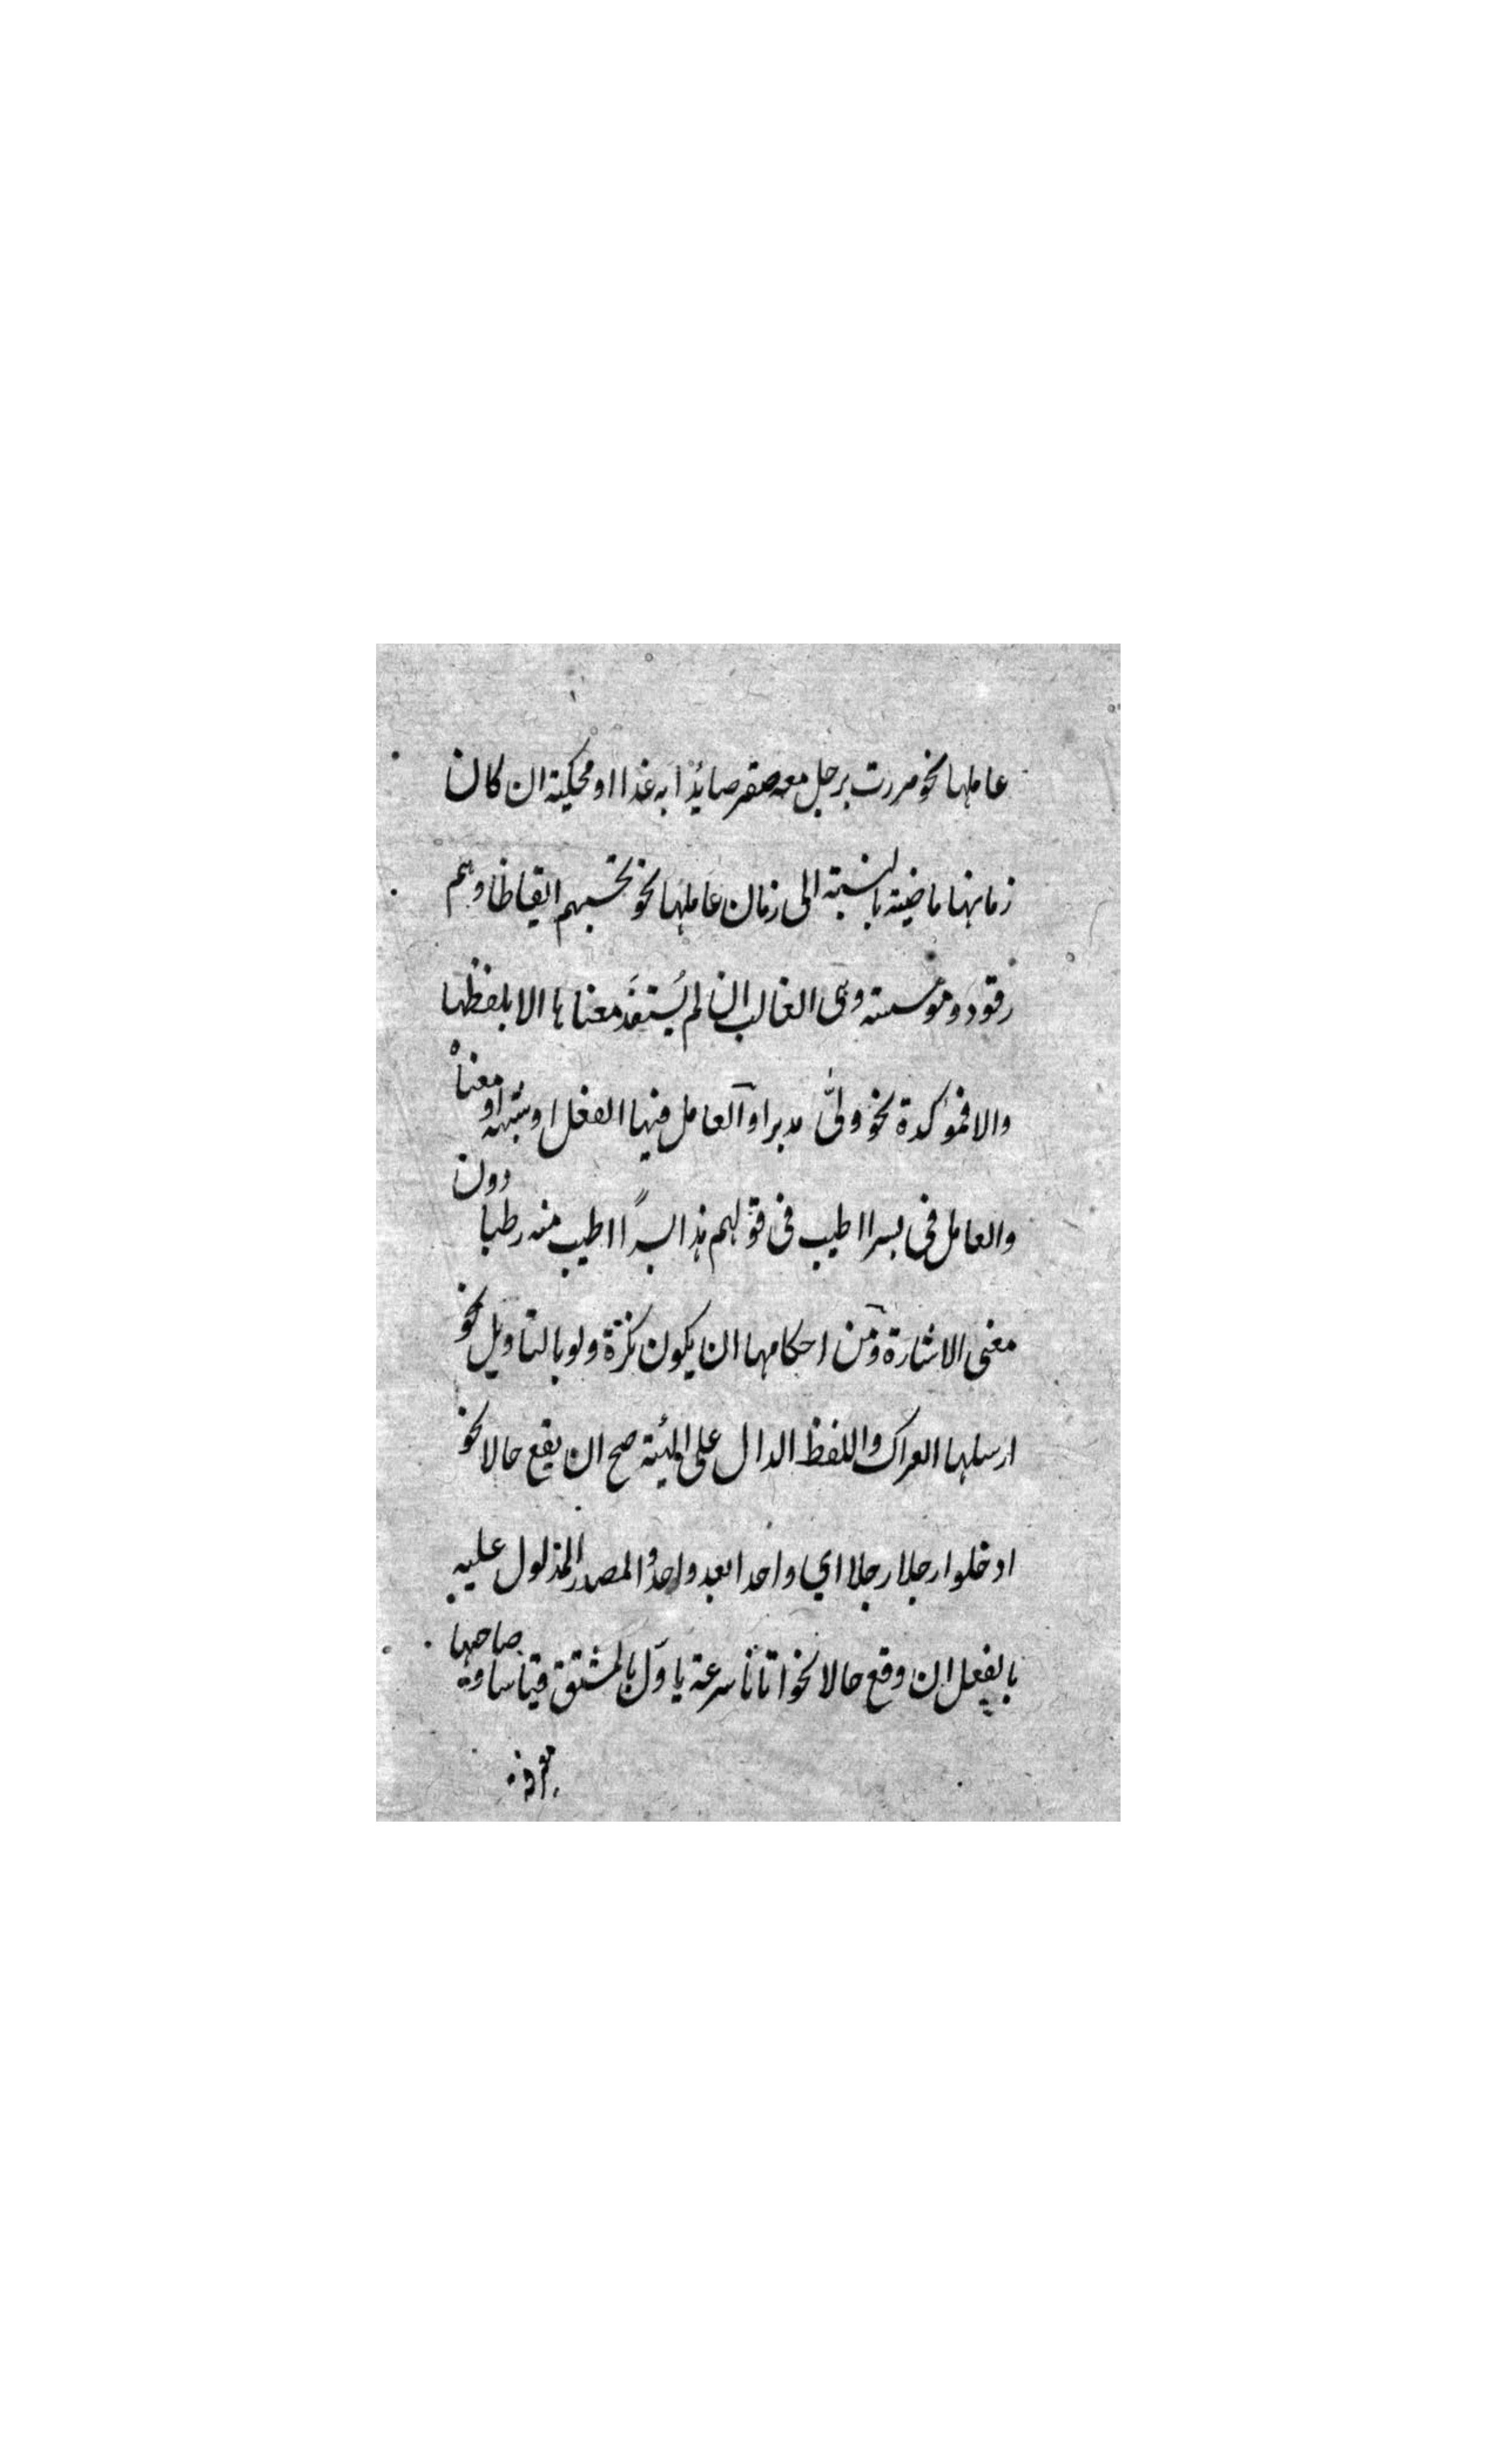 عاملها نحو مررت برجل معه صقر صايدًا به غدا او محكية ان كان
زمانها ماضية بالنسبة الى زمان عاملها نحو تحسبهم ايقاظا وهم
رقود و مؤسسة وهى الغالب ان لم يُستفَد معناها الا بلفظها
والا فمؤكدة نحو ولىّ مدبرا و العامل فيها الفعل او شبهه او معناه
والعامل فى بسرا اطيب فى قولهم هذا بسرًا اطيب منه رطبا دون
معنى الاشارة و من احكامها ان يكون نكرة ولو بالتاويل نحو
ارسلها العراك واللفظ الدال على الهيئة صح ان يقع حالا نحو
ادخلوا رجلا رجلا اي واحدا بعد واحد والمصدر المدلول عليه
بالفعل ان وقع حالا نحو اتانا سرعة ياوّل بالمشتق قياسا و صاحبها